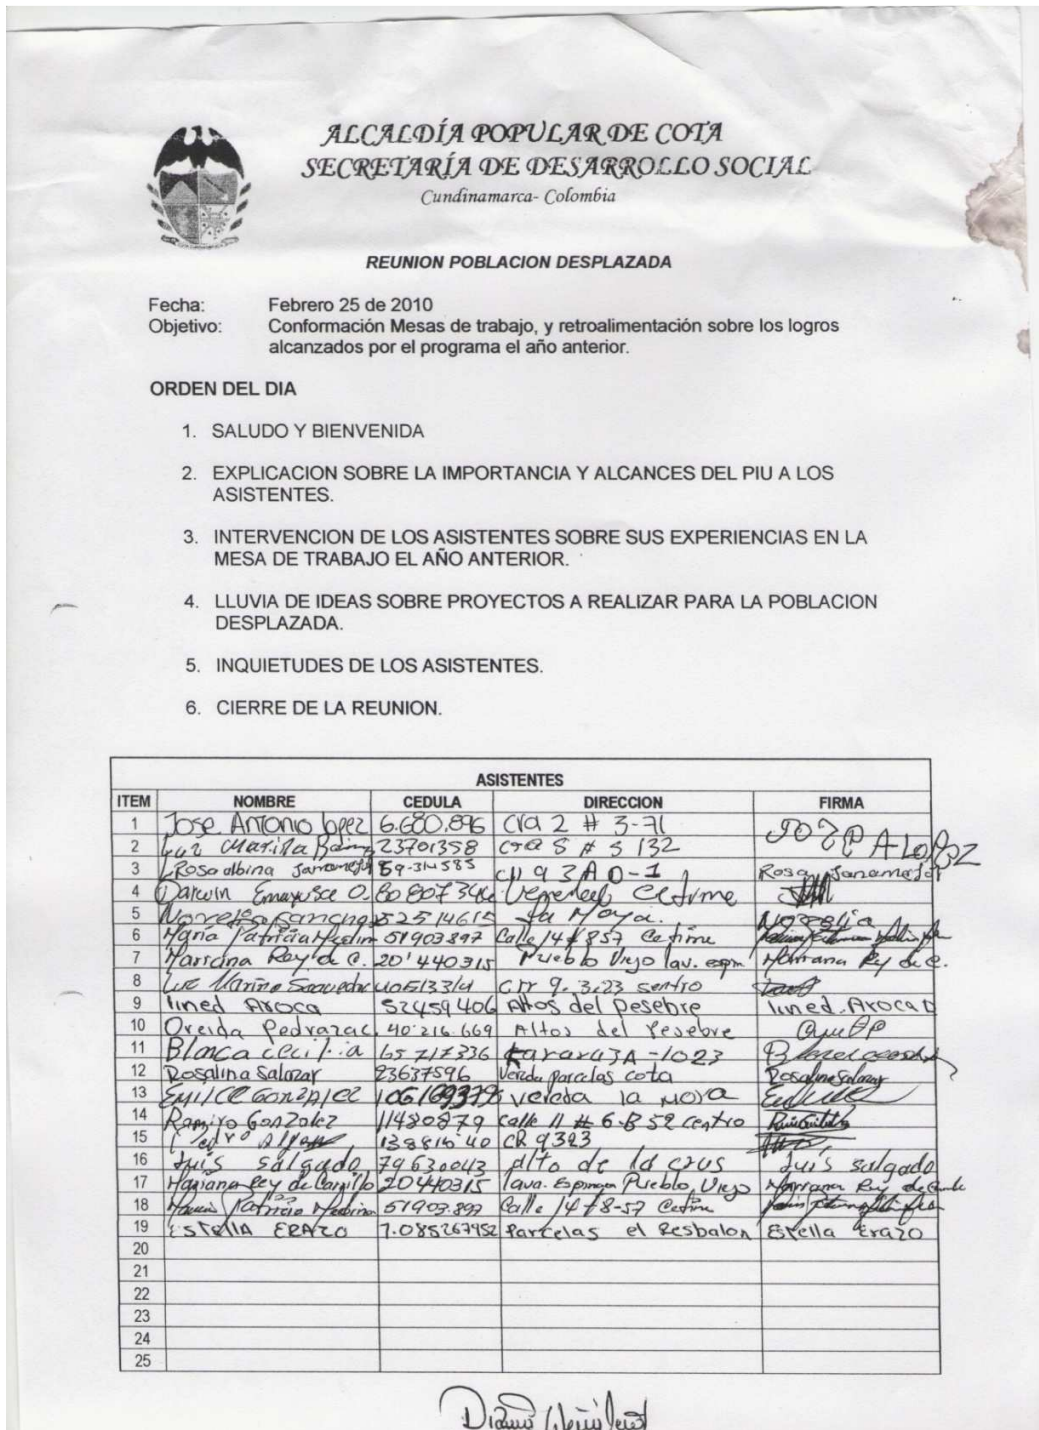 ALCALDÍA POPULAR DE COTA
SECRETARÍA DE DESARROLLO SOCIAL
Cundinamarca- Colombia
REUNION POBLACION DESPLAZADA
Fecha: Febrero 25 de 2010
Objetivo: Conformación Mesas de trabajo, y retroalimentación sobre los logros
alcanzados por el programa el año anterior.
ORDEN DEL DIA
1. SALUDO Y BIENVENIDA
2. EXPLICACION SOBRE LA IMPORTANCIA Y ALCANCES DEL PIU A LOS
ASISTENTES.
3. INTERVENCION DE LOS ASISTENTES SOBRE SUS EXPERIENCIAS EN LA
MESA DE TRABAJO EL AÑO ANTERIOR.
4. LLUVIA DE IDEAS SOBRE PROYECTOS A REALIZAR PARA LA POBLACION
DESPLAZADA.
5. INQUIETUDES DE LOS ASISTENTES.
6. CIERRE DE LA REUNION.
ASISTENTES
ITEM NOMBRE CEDULA DIRECCION FIRMA
1 Jose Antonio lopez 6.680.896 cra 2 # 3-71
2 Luz Marina 23701358 cra 5 # 5 132
3 Rosa albina 59-314585 Rosa
4 Darwin
5 la Moya.
6 Maria Patricia 51903897 Calle 14 # 857 Cetime
7 Mariana Rey de C. 20'440315 Pueblo Viejo lav. Mariana Rey de C.
8 Luz Marina 9. 3.23 sentro
9 lined Aroca 52459406 Altos del Pesebre lined. Aroca
10 Oreida Pedraza C. 40.216.669 Altos del Pesebre
11 Blanca cecilia 65717336
12 Rosalina Salazar 23637596 Vereda parcelas cota Rosalina Salazar
13 EMILCE GONZALEZ vereda la Moya
14 Ramiro Gonzalez 11480879 calle 11 # 6-B 52 centro
15 CR 9323
16 Luis salgado 79630043 alto de la crus Luis salgado
17 Mariana Rey de Carrillo 20440315 lava. Pueblo Viejo Mariana Rey de
18 Patricia 51903.897 Calle 14 # 8-57 Cetime
19 ESTELLA ERAZO 1.085267952 Parcelas el Resbalon Estella Erazo
20
21
22
23
24
25